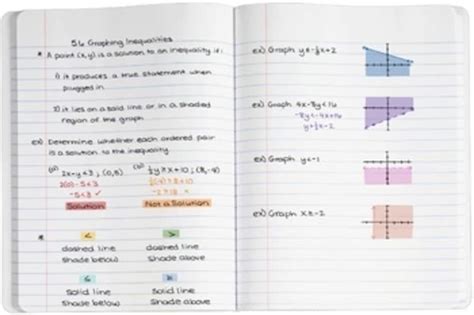 5.6 Graphing Inequalities
* A point (x,y) is a solution to an inequality if:
1) it produces a true statement when
plugged in
2) it lies on a solid line or in a shaded
region of the graph
ex) Determine whether each ordered pair
is a solution to the inequality
(a) 2x-y≤3 ; (0,5) (b)
2(0)-5≤3
-5≤3 ✓
Solution Not a Solution
*
< >
dashed line dashed line
shade below shade above
≤ ≥
solid line solid line
shade below shade above
ex) Graph
ex) Graph 4x-8y<16
-8y<-4x+16
ex) Graph y<-1
ex) Graph x≥-2